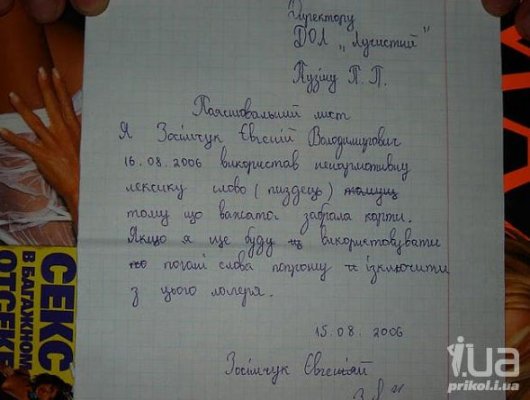 Директору
ДОЛ „Лучистий"
Пузіну П. П.
Пояснювальний лист
Я Засімчук Євгеній Володимирович
16.08.2006 використав ненормативну
лексику слово (пиздець)
тому що вожата забрала карти.
Якщо я ще буду використовувати
погані слова попрошу ізключити
з цього лагеря.
15.08.2006
Засімчук Євгеній
СЕКС
В БАГАЖНОМ
ОТСЕКЕ
i.ua
prikol.i.ua